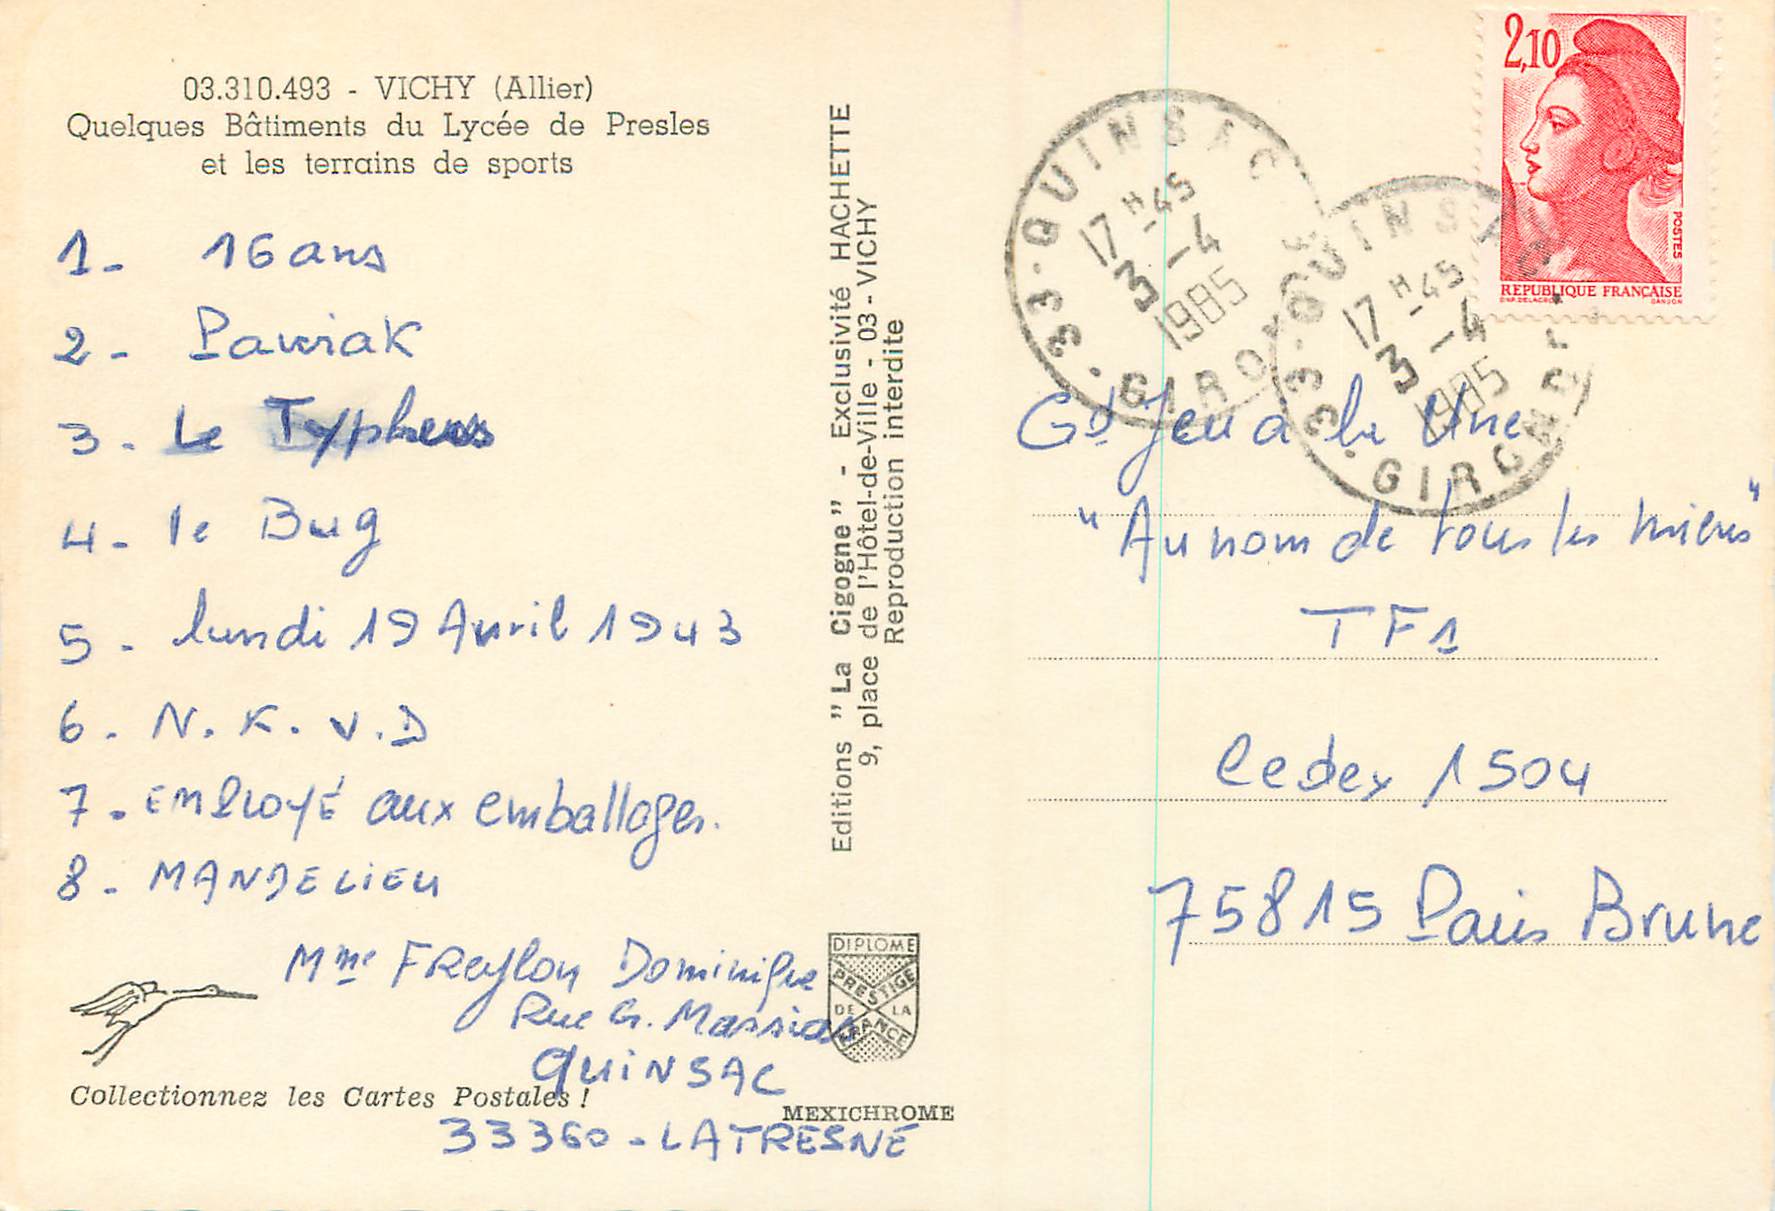 03.310.493 - VICHY (Allier)
Quelques Bâtiments du Lycée de Presles
et les terrains de sports
1- 16 ans
2 - Pawiak
3 - Le Typhus
4 - le Bug
5 - lundi 19 Avril 1943
6 - N. K. V. D
7 - EMPLOYÉ aux emballages.
8 - MANDELIEU
Mme FREylon Dominique
Rue G. Massias
QUINSAC
33360 - LATRESNE
Collectionnez les Cartes Postales !
MEXICHROME
DIPLOME
PRESTIGE
DE LA
FRANCE
Editions "La Cigogne" - Exclusivité HACHETTE
9, place de l'Hôtel-de-Ville - 03 - VICHY
Reproduction interdite
2,10
POSTES
REPUBLIQUE FRANÇAISE
D'AP. DELACROIX GANDON
33 - QUINSAC
17 H 45
3 - 4
1985
GIRONDE
33 - QUINSAC
17 H 45
3 - 4
1985
GIRONDE
Gd Jeu a la Une
"Au nom de tous les miens"
TF1
Cedex 1504
75815 Paris Brune